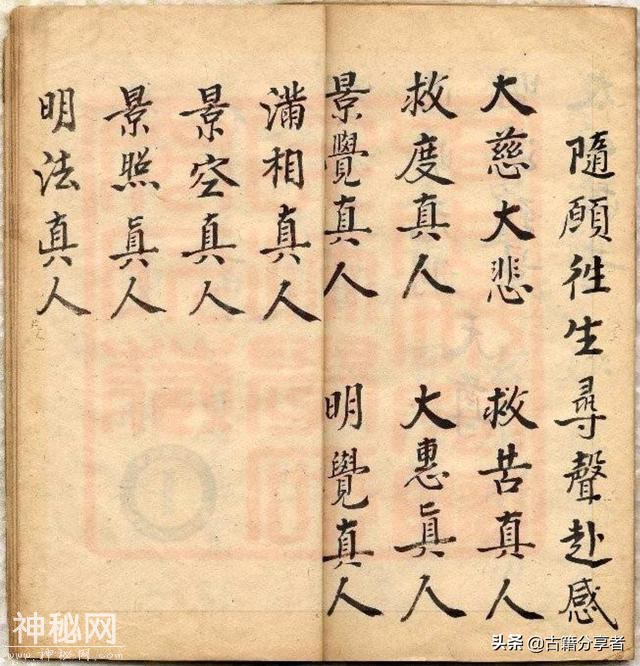 隨願徃生尋聲赴感
大慈大悲 救苦真人
救度真人 大惠眞人
景覺真人 明覺真人
滿相真人
景空真人
景照眞人
明法真人
神秘网
头条 @古籍分享者